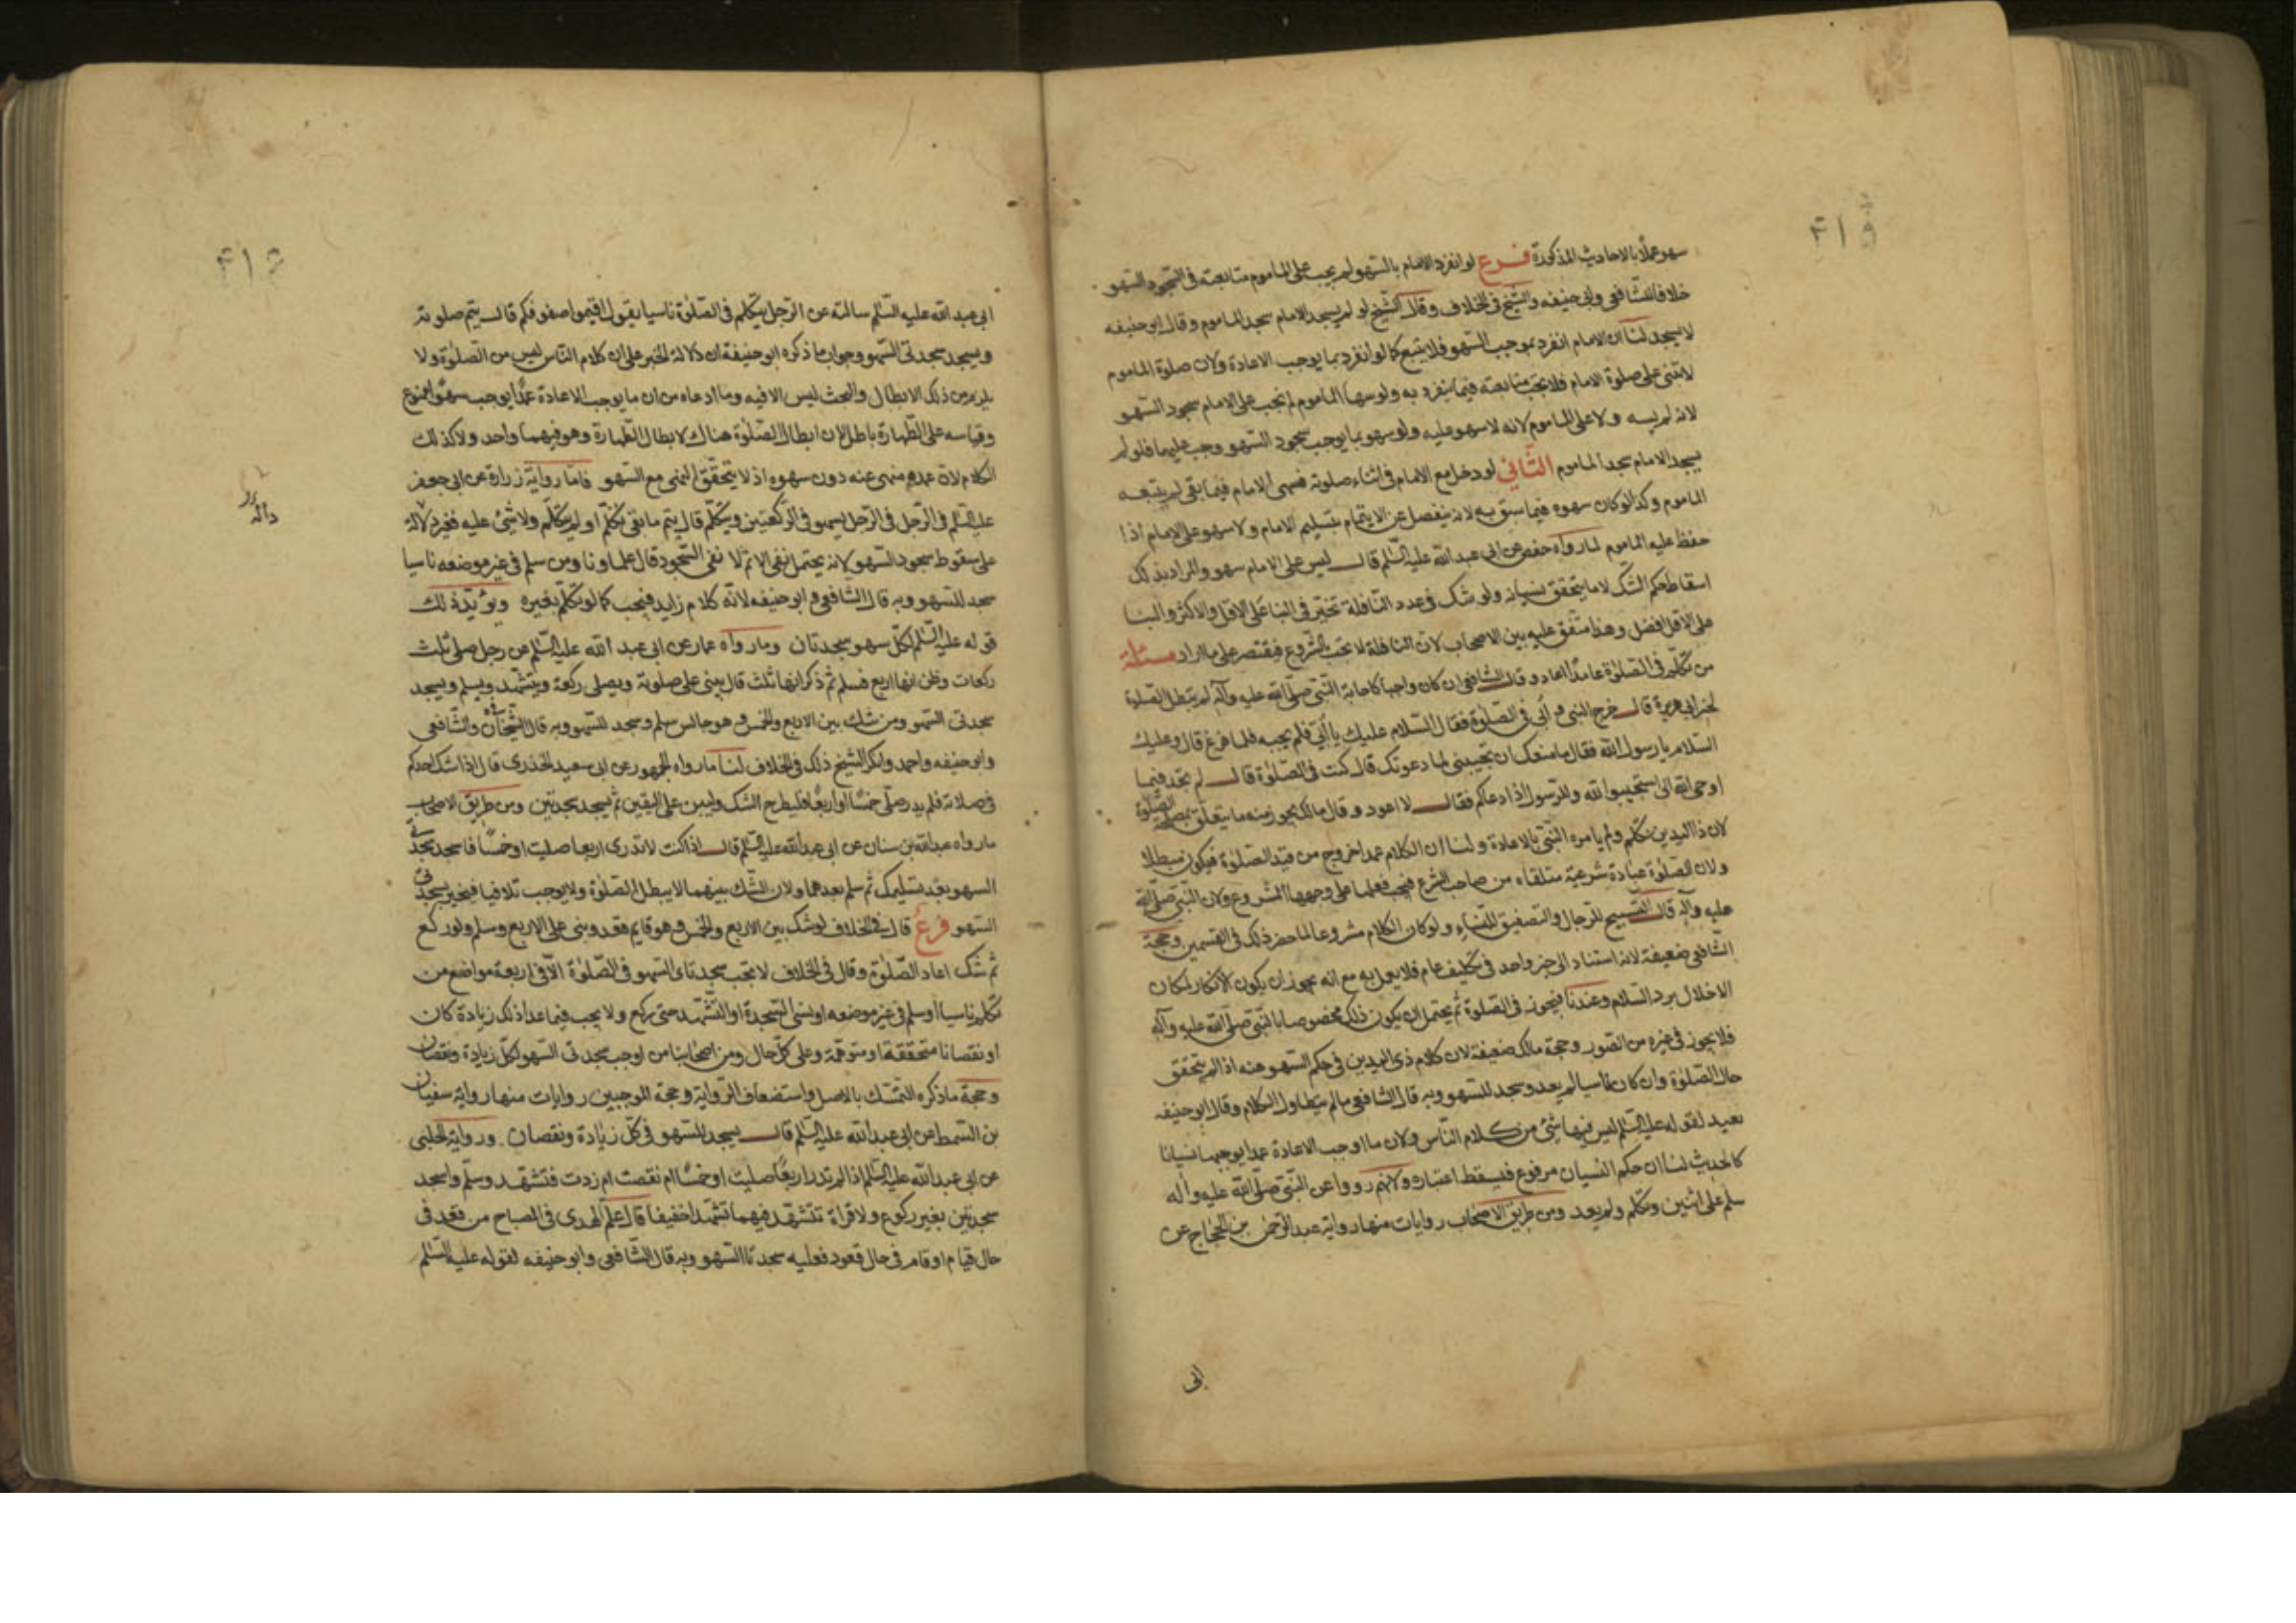 سهو عملا بالاحاديث المذكورة فرع لو انفرد الامام بالسهو لم يجب على الماموم متابعته فى السجود السهو
خلافا للشافعى وابى حنيفه والشيخ فى الخلاف وقال الشيخ لو لم يسجد الامام سجد الماموم وقال ابو حنيفه
لا يسجد لنا ان الامام انفرد بموجب السهو فلا يتبع كما لو انفرد بما يوجب الاعادة ولان صلوة الماموم
لا تبتنى على صلوة الامام فلا يجب متابعته فيما ينفرد به ولو سها الماموم لم تجب على الامام سجود السهو
لانه لم يسه ولا على الماموم لانه لا سهو عليه ولو سهو بما يوجب سجود السهو وجب عليهما فلو لم
يسجد الامام سجد الماموم الثانى لو دخل مع الامام فى اثناء صلوته فسهى الامام فيما بقى لم يتبعه
الماموم وكذا لو كان سهوه فيما سبق به لانه ينفصل عن الايتمام بتسليم الامام ولا سهو على الامام اذا
حفظ عليه الماموم لما رواه حفص عن ابى عبد الله عليه السلم قال ليس على الامام سهو والمراد بذلك
اسقاط حكم الشك لا ما يتحقق نسيانه ولو شك فى عدد النافلة تخير فى البنا على الاقل والاكثر والبنا
على الاقل افضل وهذا متفق عليه بين الاصحاب لان النافلة لا تجب بالشروع فيقتصر على ما اراد مسئلة
من تكلم فى الصلوة عامدا اعاد وقال الشافعى ان كان واجبا كاجابة النبى صلى الله عليه وآله لم يبطل الصلوة
لخبر ابى هريرة قال خرج النبى و ابى فى الصلوة فقال السلام عليك يا ابى فلم يجبه فلما فرغ قال وعليك
السلام يا رسول الله فقال ما منعك ان تجيبنى لما دعوتك قال كنت فى الصلوة قال لم تجد فيما
اوحى الله الى استجيبوا لله وللرسول اذا دعاكم فقال لا اعود وقال مالك يجوز منه ما يتعلق بمصلحة الصلوة
لان ذا اليدين تكلم ولم يامره النبى بالاعادة ولنا ان الكلام عمدا خروج من قيد الصلوة فيكون مبطلا
ولان الصلوة عبادة شرعية متلقاه من صاحب الشرع فيجب فعلها على وجهها المشروع ولان النبى صلى الله
عليه وآله قال التسبيح للرجال والتصفيق للنساء ولو كان الكلام مشروعا لما حصر ذلك فى القسمين وحجة
الشافعى ضعيفة لانه استناد الى خبر واحد فى تكليف عام فلا يعمل به مع انه يجوز ان يكون الانكار لمكان
الاخلال برد السلام وعندنا فيجوز فى الصلوة ثم يحتمل ان يكون ذلك مخصوصا بالنبى صلى الله عليه وآله
فلا يجوز فى غيره من الصور وحجة مالك ضعيفة لان كلام ذى اليدين فى حكم السهو منه اذا لم يتحقق
حال الصلوة وان كان ناسيا لم يعد وسجد للسهو وبه قال الشافعى ما لم يتطاول الكلام وقال ابو حنيفه
يعيد لقوله عليه السلم ليس فيها شئ من كلام الناس ولان ما اوجب الاعادة عمدا يوجبها نسيانا
كالحدث لنا ان حكم النسيان مرفوع فيسقط اعتباره ولانهم رووا عن النبى صلى الله عليه وآله
سلم على اثنين وتكلم ولم يعد ومن طريق الاصحاب روايات منها رواية عبد الرحمن بن الحجاج عن
ابى
ابى عبد الله عليه السلم سالته عن الرجل يتكلم فى الصلوة ناسيا يقول اقيموا صفوفكم قال يتم صلوته
ويسجد سجدتى السهو وجواب ما ذكره ابو حنيفة ان دلالة الخبر على ان كلام الناس ليس من الصلوة ولا
يلزم من ذلك الابطال والبحث ليس الا فيه وما ادعاه من ان ما يوجب الاعادة عمدا يوجب سهوا ممنوع
وقياسه على الطهارة باطل لان ابطال الصلوة هناك لابطال الطهارة وهو فيهما واحد ولا كذلك
الكلام لان عمده منهى عنه دون سهوه اذ لا يتحقق النهى مع السهو فاما رواية زرارة عن ابى جعفر
عليه السلم فى الرجل فى الرجل يسهو فى الركعتين ويتكلم قال يتم ما بقى تكلم او لم يتكلم ولا شئ عليه فغير دالة
على سقوط سجود السهو لانه يحتمل نفى الاثم لا نفى السجود قال علماونا ومن سلم فى غير موضعه ناسيا
سجد للسهو وبه قال الشافعى وابو حنيفه لانه كلام زايد فيجب كما لو تكلم بغيره ويؤيد ذلك
قوله عليه السلم لكل سهو سجدتان وما رواه عمار عن ابى عبد الله عليه السلم عن رجل صلى ثلث
ركعات وظن انها اربع فسلم ثم ذكر انها ثلث قال يبنى على صلوته ويصلى ركعة ويتشهد ويسلم ويسجد
سجدتى السهو ومن شك بين الاربع والخمس وهو جالس سلم وسجد للسهو وبه قال الشيخان والشافعى
وابو حنيفه واحمد وانكر الشيخ ذلك فى الخلاف لنا ما رواه الجمهور عن ابى سعيد الخدرى قال اذا شك احدكم
فى صلاته فلم يدر صلى خمسا او اربعا فليطرح الشك وليبن على اليقين ثم يسجد سجدتين ومن طريق الاصحاب
ما رواه عبد الله بن سنان عن ابى عبد الله عليه السلم قال اذا كنت لا تدرى اربعا صليت او خمسا فاسجد سجدتى
السهو بعد تسليمك ثم سلم بعدهما ولان الشك بينهما لا يبطل الصلوة ولا يوجب تلافيا فيجبر بسجدتى
السهو فرع قال فى الخلاف لو شك بين الاربع والخمس وهو قايم قعد وبنى على الاربع وسلم ولو ركع
ثم شك اعاد الصلوة وقال فى الخلاف لا تجب سجدتا السهو فى الصلوة الا فى اربعة مواضع من
تكلم ناسيا او سلم فى غير موضعه او نسى السجدة او التشهد حتى يركع ولا يجب فيما عدا ذلك زيادة كان
او نقصانا متحققة او متوهمة وعلى كل حال ومن اصحابنا من اوجب سجدتى السهو لكل زيادة ونقصان
وحجة ما ذكره التمسك بالاصل واستضعاف الرواية وحجة الموجبين روايات منها رواية سفيان
بن السمط عن ابى عبد الله عليه السلم قال يسجد للسهو فى كل زيادة ونقصان ورواية الحلبى
عن ابى عبد الله عليه السلم اذا لم تدر اربعا صليت او خمسا ام نقصت ام زدت فتشهد وسلم واسجد
سجدتين بغير ركوع ولا قراة تتشهد فيهما تشهدا خفيفا قال علم الهدى فى المصباح من قعد فى
حال قيام او قام فى حال قعود فعليه سجدتا السهو وبه قال الشافعى وابو حنيفه لقوله عليه السلم